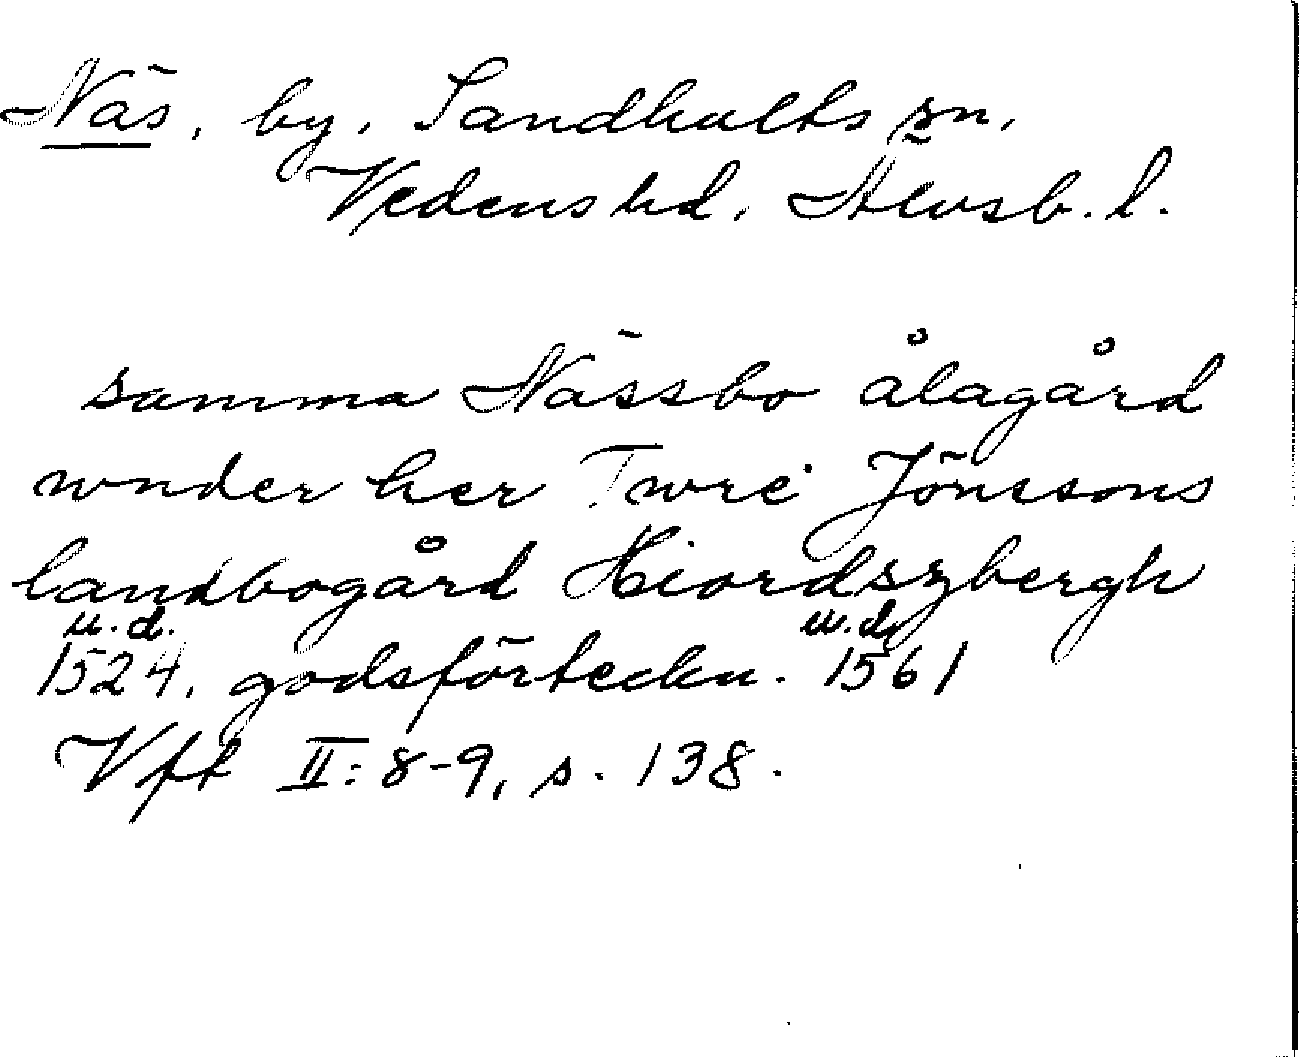 Näs, by, Sandhults sn,
Vedens hd, Älvsb. l.
samma Nässbo ålagård
wnder her Twre Jönssons
landbogård Hiordszbergh
u.d. u.d.
1524, godsförteckn. 1561
Vft II: 8-9, s. 138.